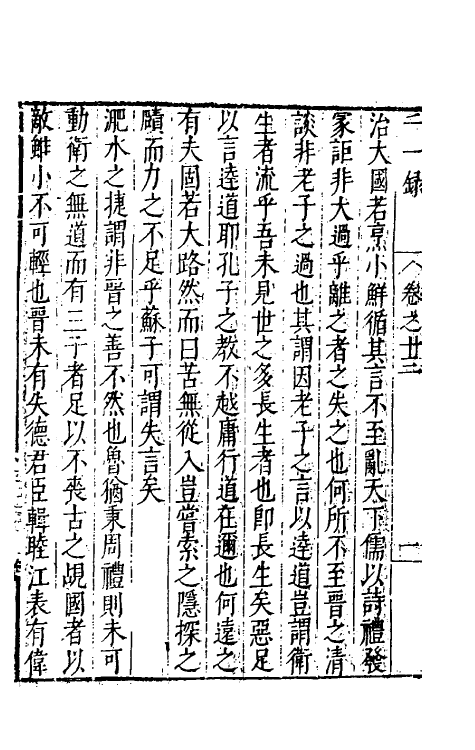 二一錄　卷之廿三　一
治大國若烹小鮮循其言不至亂天下儒以詩禮發
冢詎非大過乎離之者之失之也何所不至晉之清
談非老子之過也其謂因老子之言以達道豈謂衛
生者流乎吾未見世之多長生者也卽長生矣惡足
以言達道耶孔子之教不越庸行道在邇也何遠之
有夫固若大路然而曰苦無從入豈嘗索之隱探之
賾而力之不足乎蘇子可謂失言矣
淝水之捷謂非晉之善不然也魯猶秉周禮則未可
動衛之無道而有三子者足以不喪古之覘國者以
敵雖小不可輕也晉未有失德君臣輯睦江表有偉